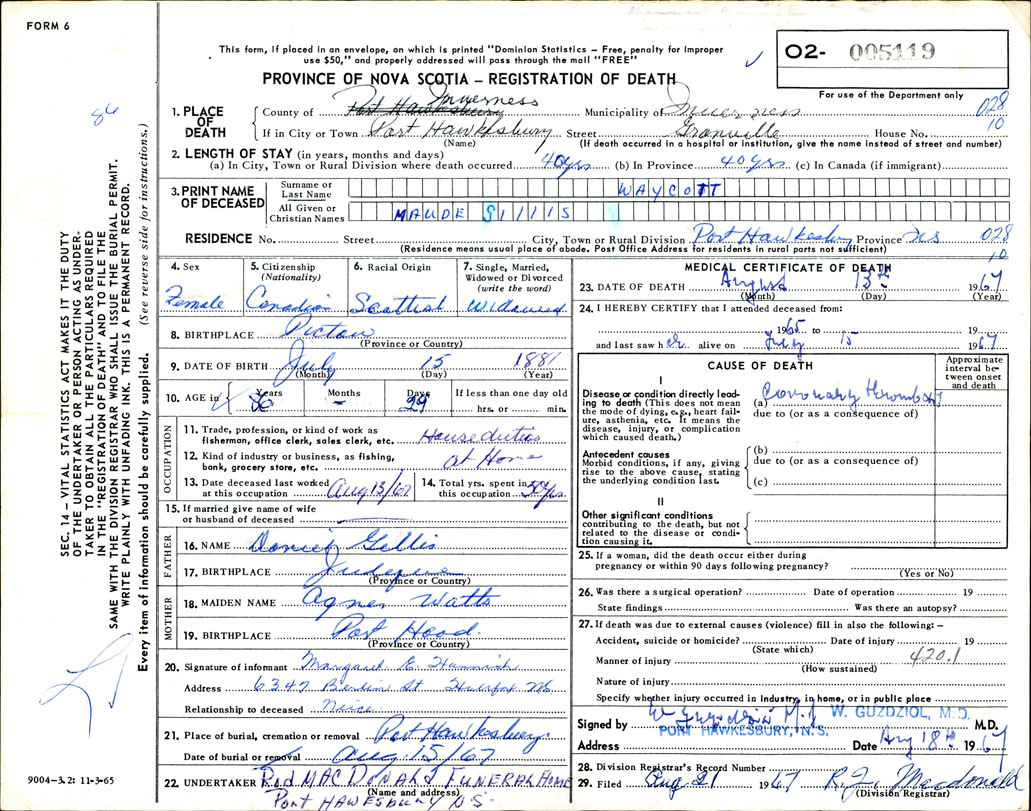 FORM 6
This form, if placed in an envelope, on which is printed "Dominion Statistics – Free, penalty for improper
use $50," and properly addressed will pass through the mail "FREE"
O2- 005119
PROVINCE OF NOVA SCOTIA – REGISTRATION OF DEATH
For use of the Department only
86
SEC. 14 – VITAL STATISTICS ACT MAKES IT THE DUTY
OF THE UNDERTAKER OR PERSON ACTING AS UNDER-
TAKER TO OBTAIN ALL THE PARTICULARS REQUIRED
IN THE "REGISTRATION OF DEATH" AND TO FILE THE
SAME WITH THE DIVISION REGISTRAR WHO SHALL ISSUE THE BURIAL PERMIT.
WRITE PLAINLY WITH UNFADING INK. THIS IS A PERMANENT RECORD.
Every item of information should be carefully supplied. (See reverse side for instructions.)
1. PLACE OF DEATH
County of Port Hawkesbury Inverness Municipality of Inverness 028
If in City or Town Port Hawkesbury Street Granville House No. 10
(Name) (If death occurred in a hospital or institution, give the name instead of street and number)
2. LENGTH OF STAY (in years, months and days)
(a) In City, Town or Rural Division where death occurred 40 yrs (b) In Province 40 yrs (c) In Canada (if immigrant)
3. PRINT NAME OF DECEASED
Surname or Last Name WAYCOTT
All Given or Christian Names MAUDE Sillis
RESIDENCE No. Street City, Town or Rural Division Port Hawkesbury Province NS 028
(Residence means usual place of abode. Post Office Address for residents in rural parts not sufficient) 10
4. Sex Female
5. Citizenship (Nationality) Canadian
6. Racial Origin Scottish
7. Single, Married, Widowed or Divorced (write the word) Widowed
8. BIRTHPLACE Pictou
(Province or Country)
9. DATE OF BIRTH July 15 1881
(Month) (Day) (Year)
10. AGE in Years 86 Months - Days 29 If less than one day old
hrs. or min.
OCCUPATION
11. Trade, profession, or kind of work as
fisherman, office clerk, sales clerk, etc. House duties
12. Kind of industry or business, as fishing,
bank, grocery store, etc. at Home
13. Date deceased last worked
at this occupation Aug 13/67
14. Total yrs. spent in
this occupation 50 yrs.
15. If married give name of wife
or husband of deceased
FATHER
16. NAME Daniel Gillis
17. BIRTHPLACE Judique
(Province or Country)
MOTHER
18. MAIDEN NAME Agnes Watts
19. BIRTHPLACE Port Hood.
(Province or Country)
20. Signature of informant Margaret E. Hamish
Address 6347 Berlin St Halifax NS.
Relationship to deceased Niece
21. Place of burial, cremation or removal Port Hawkesbury
Date of burial or removal Aug 15/67
22. UNDERTAKER Rod MACDONALD FUNERAL HOME
(Name and address)
PORT HAWKESBURY N.S.
9004-3.2: 11-3-65
MEDICAL CERTIFICATE OF DEATH
23. DATE OF DEATH August 13th 1967
(Month) (Day) (Year)
24. I HEREBY CERTIFY that I attended deceased from:
1965 to 19
and last saw her alive on July 15 1967
CAUSE OF DEATH
Approximate interval between onset and death
I
Disease or condition directly lead-
ing to death (This does not mean
the mode of dying, e.g., heart fail-
ure, asthenia, etc. It means the
disease, injury, or complication
which caused death.)
(a) Coronary thrombosis
due to (or as a consequence of)
Antecedent causes
Morbid conditions, if any, giving
rise to the above cause, stating
the underlying condition last.
(b)
due to (or as a consequence of)
(c)
II
Other significant conditions
contributing to the death, but not
related to the disease or condi-
tion causing it.
25. If a woman, did the death occur either during
pregnancy or within 90 days following pregnancy?
(Yes or No)
26. Was there a surgical operation? Date of operation 19
State findings Was there an autopsy?
27. If death was due to external causes (violence) fill in also the following: –
Accident, suicide or homicide? Date of injury 19
(State which)
420.1
Manner of injury
(How sustained)
Nature of injury
Specify whether injury occurred in Industry, in home, or in public place
Signed by W Guzdziol M.D. W. GUZDZIOL, M.D. M.D.
PORT HAWKESBURY, N. S.
Address Date Aug 18th 1967
28. Division Registrar's Record Number
29. Filed Aug 21 1967 Macdonald
(Division Registrar)